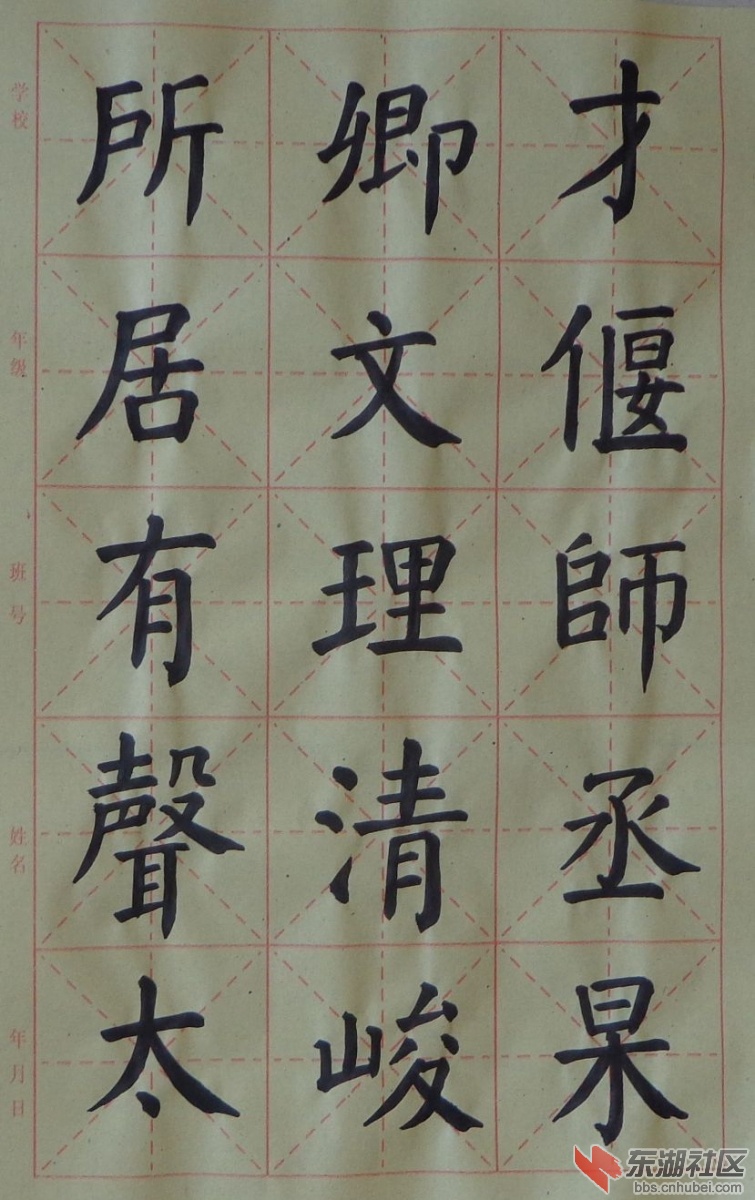 才偃師丞杲
卿文理清峻
所居有聲太
学校
年级
班号
姓名
年月日
东湖社区
bbs.cnhubei.com